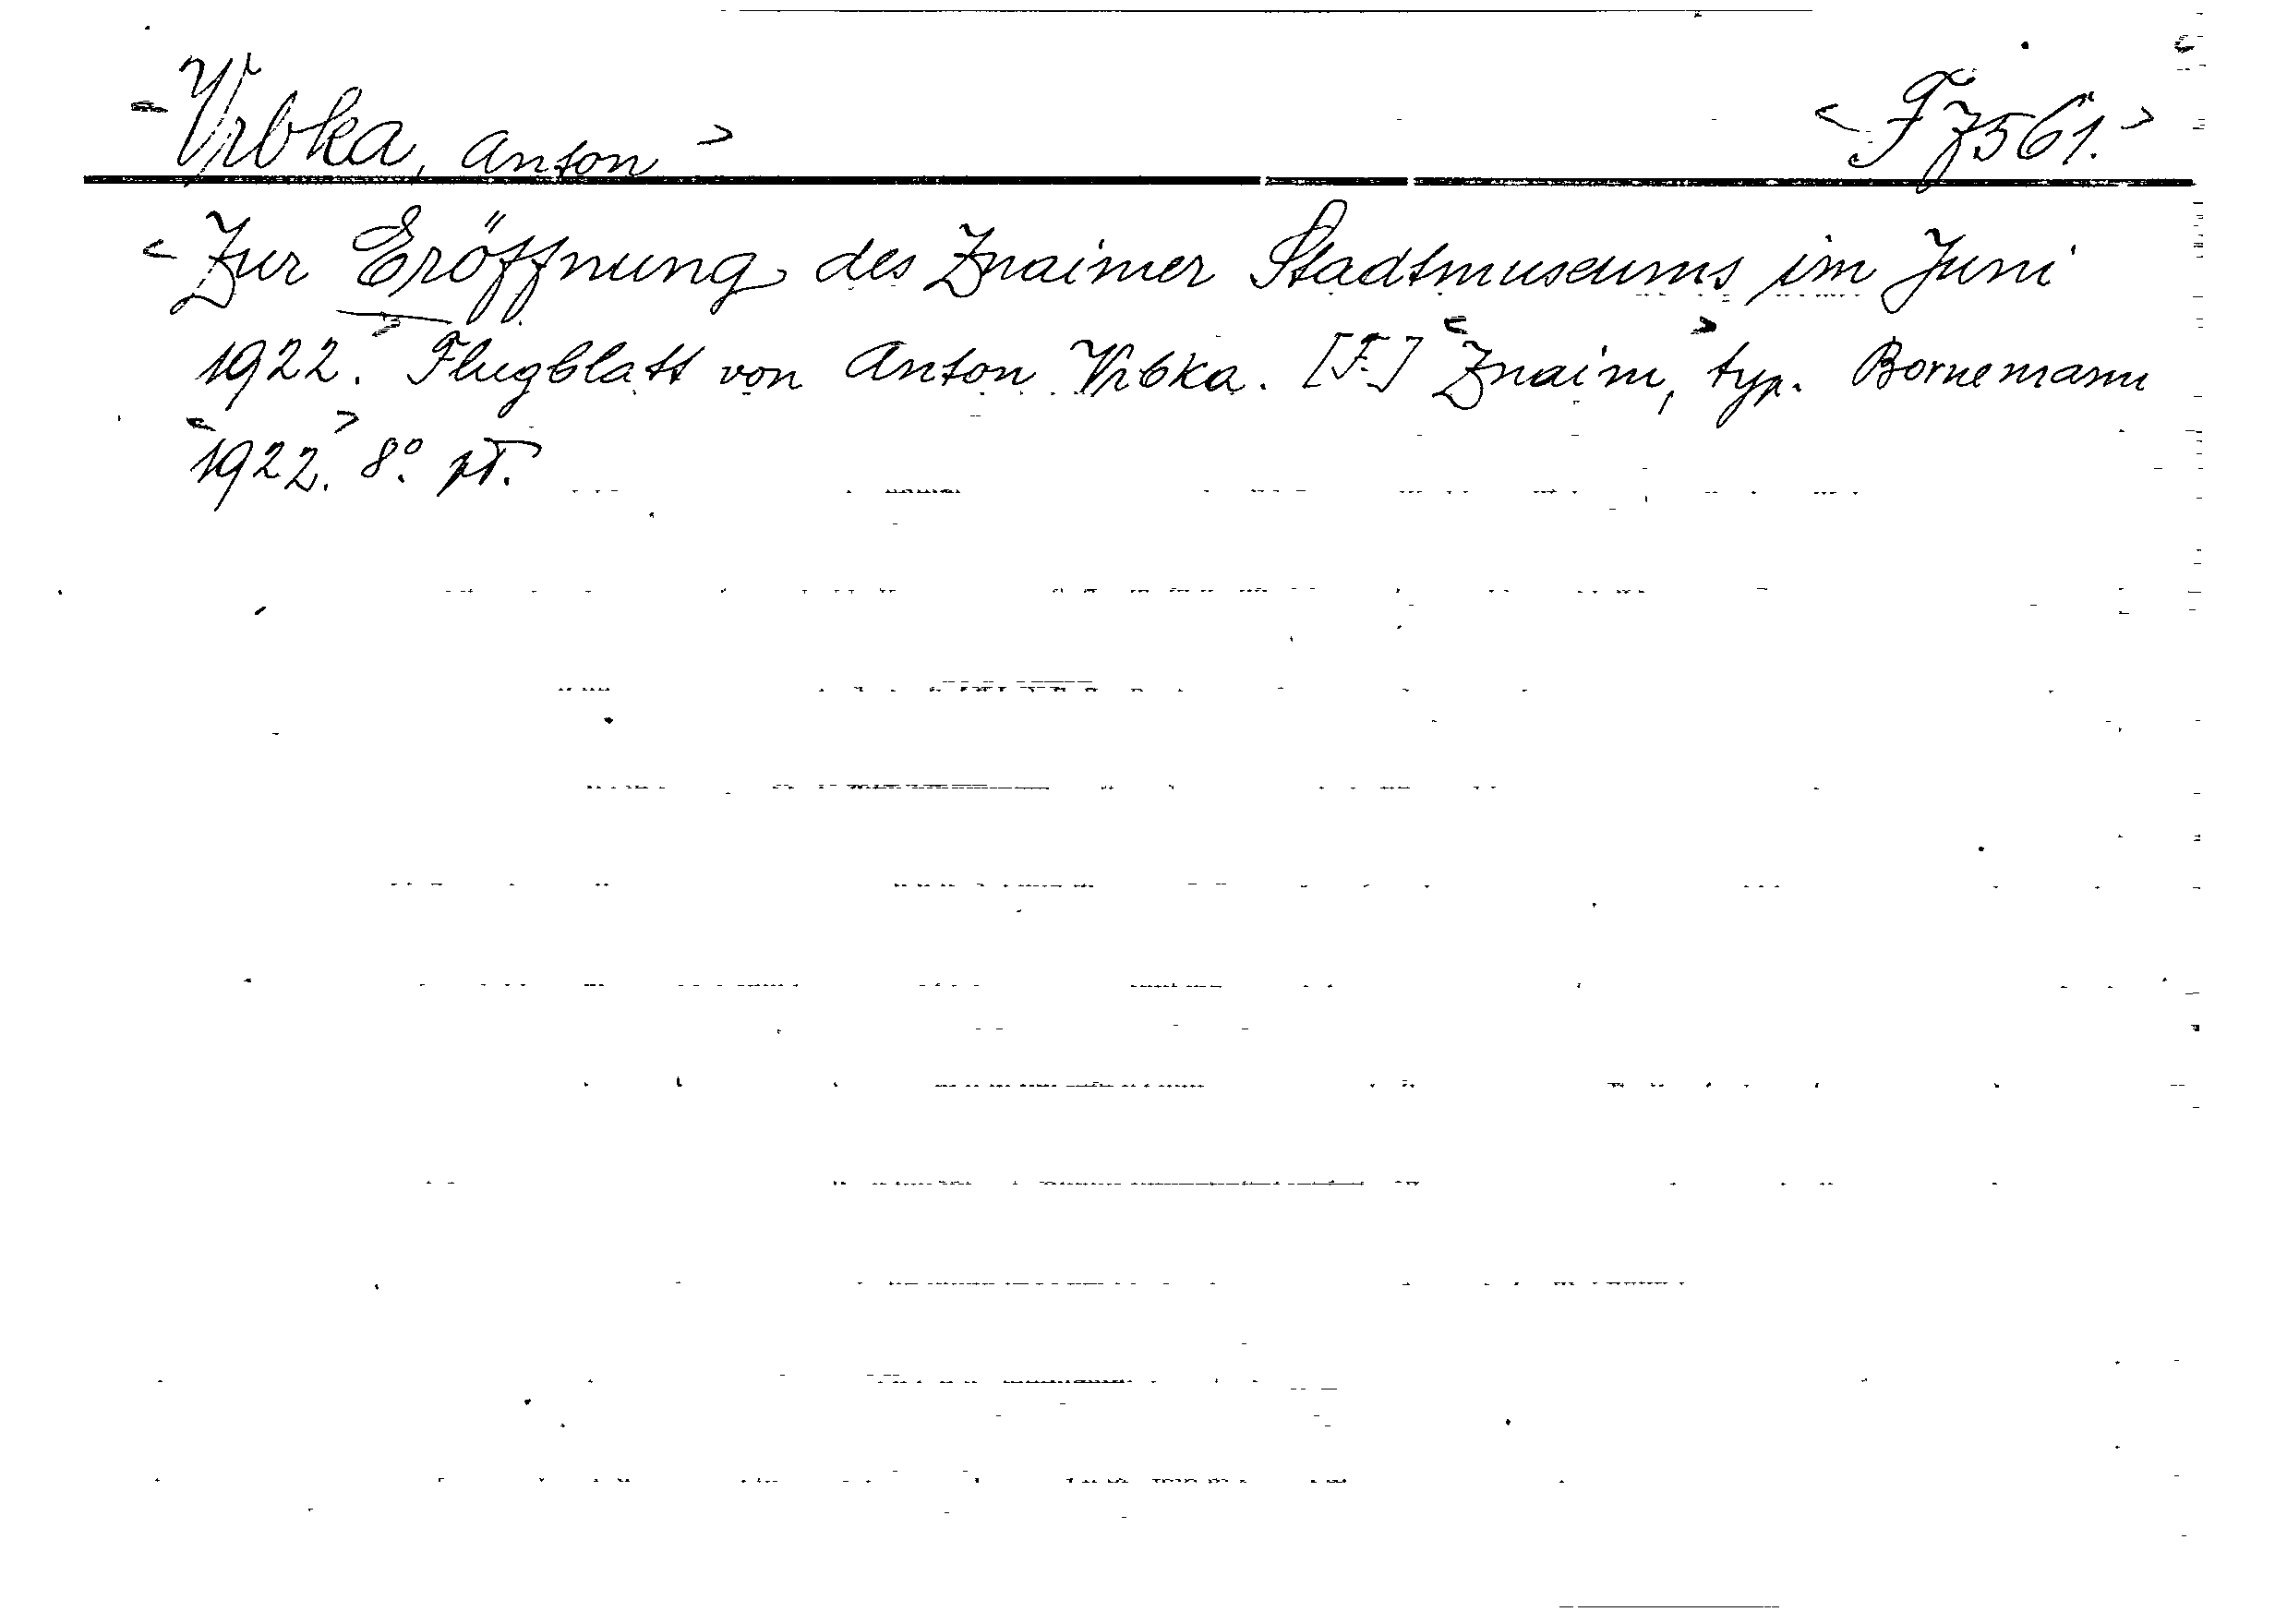 <Vrbka, Anton> <F 7561.>
<Zur Eröffnung des Znaimer Stadtmuseums im Juni
1922.> Flugblatt von Anton Vrbka. [F.] <Znaim,> typ. Bornemann
<1922.> 8º. pT.